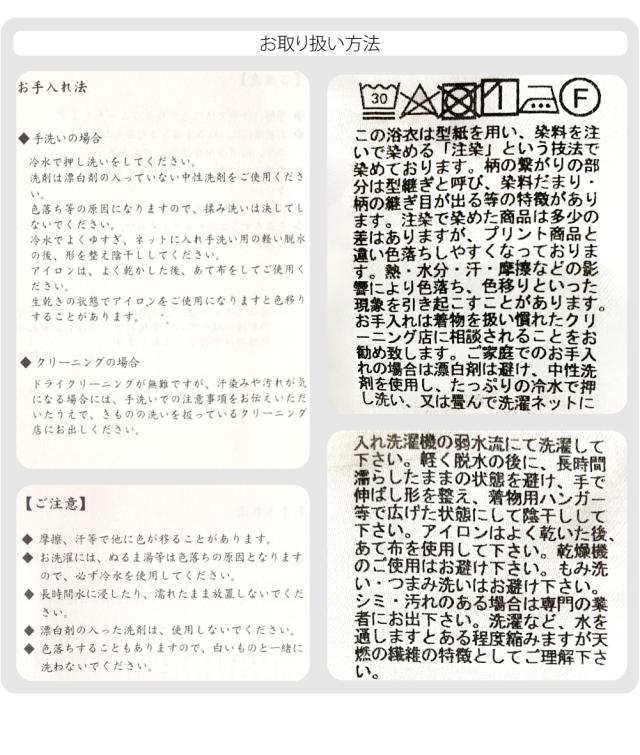 お取り扱い方法
お手入れ法
◆ 手洗いの場合
冷水で押し洗いをしてください。
洗剤は漂白剤の入っていない中性洗剤をご使用くださ
い。
色落ち等の原因になりますので、揉み洗いは決してし
ないでください。
冷水でよくゆすぎ、ネットに入れ手洗い用の軽い脱水
の後、形を整え陰干ししてください。
アイロンは、よく乾かした後、あて布をしてご使用く
ださい。
生乾きの状態でアイロンをご使用になりますと色移り
することがあります。
◆ クリーニングの場合
ドライクリーニングが無難ですが、汗染みや汚れが気
になる場合には、手洗いでの注意事項をお伝えいただ
いたうえで、きものの洗いを扱っているクリーニング
店にお出しください。
【ご注意】
◆ 摩擦、汗等で他に色が移ることがあります。
◆ お洗濯には、ぬるま湯等は色落ちの原因となります
ので、必ず冷水を使用してください。
◆ 長時間水に浸したり、濡れたまま放置しないでくだ
さい。
◆ 漂白剤の入った洗剤は、使用しないでください。
◆ 色落ちすることもありますので、白いものと一緒に
洗わないでください。
30 F
この浴衣は型紙を用い、染料を注
いで染める「注染」という技法で
染めております。柄の繋がりの部
分は型継ぎと呼び、染料だまり・
柄の継ぎ目が出る等の特徴があり
ます。注染で染めた商品は多少の
差はありますが、プリント商品と
違い色落ちしやすくなっておりま
す。熱・水分・汗・摩擦などの影
響により色落ち、色移りといった
現象を引き起こすことがあります。
お手入れは着物を扱い慣れたクリ
ーニング店に相談されることをお
勧め致します。ご家庭でのお手入
れの場合は漂白剤は避け、中性洗
剤を使用し、たっぷりの冷水で押
し洗い、又は畳んで洗濯ネットに
入れ洗濯機の弱水流にて洗濯して
下さい。軽く脱水の後に、長時間
濡らしたままの状態を避け、手で
伸ばし形を整え、着物用ハンガー
等で広げた状態にして陰干しして
下さい。アイロンはよく乾いた後、
あて布を使用して下さい。乾燥機
のご使用はお避け下さい。もみ洗
い・つまみ洗いはお避け下さい。
シミ・汚れのある場合は専門の業
者にお出下さい。洗濯など、水を
通しますとある程度縮みますが天
燃の繊維の特徴としてご理解下さ
い。